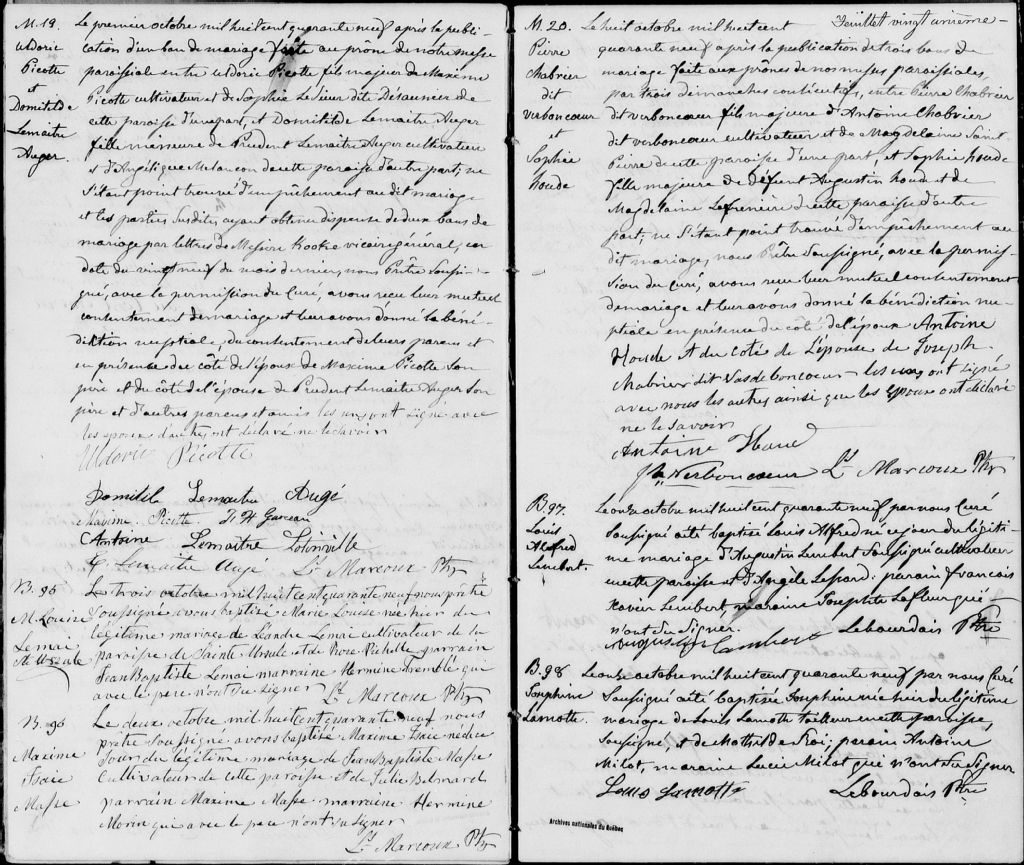 M. 19.
Uldoric
Picotte
et
Domitilde
Lemaitre
Auger.
Le premier octobre mil huit cent quarante neuf après la publi-
cation d'un ban de mariage faite au prone de notre messe
paroissiale entre Uldoric Picotte fils majeur de Maxime
Picotte cultivateur et de Sophie Le Sieur dite Désaunier de
cette paroisse d'une part, et Domitilde Lemaitre Auger
fille mineure de Prudent Lemaitre Auger cultivateur
et d'Angélique Melancon de cette paroisse d'autre part; ne
s'étant point trouvé d'empêchement au dit mariage
et les parties susdites ayant obtenu dispense de deux bans de
mariage par lettres de Messire Cooke vicaire général, en
date du vingt neuf du mois dernier, nous Prêtre soussi-
gné, avec la permission du Curé, avons reçu leur mutuel
consentement de mariage et leur avons donné la béné-
diction nuptiale, du consentement de leurs parens et
en présence du côté de l'époux de Maxime Picotte son
père et du côté de l'épouse de Prudent Lemaitre Auger son
père et d'autres parens et amis les uns ont signé avec
les époux d'autres ont déclaré ne le savoir
Uldoric Picotte
Domitile Lemaitre Augé
Maxime Picotte
Antoine Lemaître Lotinville
P. Lemaitre Auge Ls Marcoux Ptr
B. 95
M. Louise
Lemai
Ste Ursule
Le trois octobre mil huit cent quarante neuf nous prêtre
soussigné avons baptisé Marie Louise née hier du
légitime mariage de Léandre Lemai cultivateur de la
paroisse de Sainte Ursule et de Rose Pichette parrain
Jean Baptiste Lemai marraine Hermine Tremblé qui
avec le père n'ont su signer Ls Marcoux Ptr
B. 96
Maxime
Isaie
Masse
Le deux octobre mil huit cent quarante neuf nous
prêtre soussigné avons baptisé Maxime Isaie né du
jour du légitime mariage de Jean Baptiste Masse
cultivateur de cette paroisse et de Julie
parrain Maxime Masse marraine Hermine
Morin qui avec le père n'ont su signer
Ls Marcoux Ptr
Feuillet vingt unième
M. 20.
Pierre
Chabrier
dit
verboncoeur
et
Sophie
houde
Le huit octobre mil huit cent
quarante neuf après la publication de trois bans de
mariage faite aux prônes de nos messes paroissiales,
par trois dimanches consécutifs, entre Pierre Chabrier
dit verboncoeur fils majeure d'Antoine Chabrier
dit verboncoeur cultivateur et de Magdelaine Saint-
Pierre de cette paroisse d'une part, et Sophie houde
fille majeure de défunt Augustin houde et de
Magdelaine Lafrenière de cette paroisse d'autre
part; ne s'étant point trouvé d'empêchement au
dit mariage, nous Prêtre soussigné, avec la permis-
sion du Curé, avons reçu leur mutuel consentement
de mariage et leur avons donné la bénédiction nu-
ptiale en présence du côté de l'époux Antoine
Houde et du côté de l'épouse de Joseph
Chabrier dit Vasdeboncoeur les uns ont signé
avec nous les autres ainsi que les époux ont déclaré
ne le savoir
Antoine
Verboncoeur Ls Marcoux Ptr
B. 97.
Louis
Alfred
Lambert.
Le onze octobre mil huit cent quarante neuf par nous Curé
soussigné a été baptisé Louis Alfred né ce jour du légiti-
me mariage d'Augustin Lambert soussigné cultivateur
en cette paroisse et d'Angèle Lesard: parain francois
Xavier Lambert maraine Josephte Lafleur qui
n'ont su signer.
Augustin Lambert Lebourdais Ptre
B. 98
Josephine
Lamotte.
Le onze octobre mil huit cent quarante neuf par nous Curé
soussigné a été baptisée Josephine née hier du légitime
mariage de Louis Lamotte tailleur en cette paroisse,
soussigné et de Mathilde Roi; parain Antoine
Milot, maraine Lucie Milot qui n'ont su signer
Louis Lamotte Lebourdais Ptre
Archives nationales du Québec